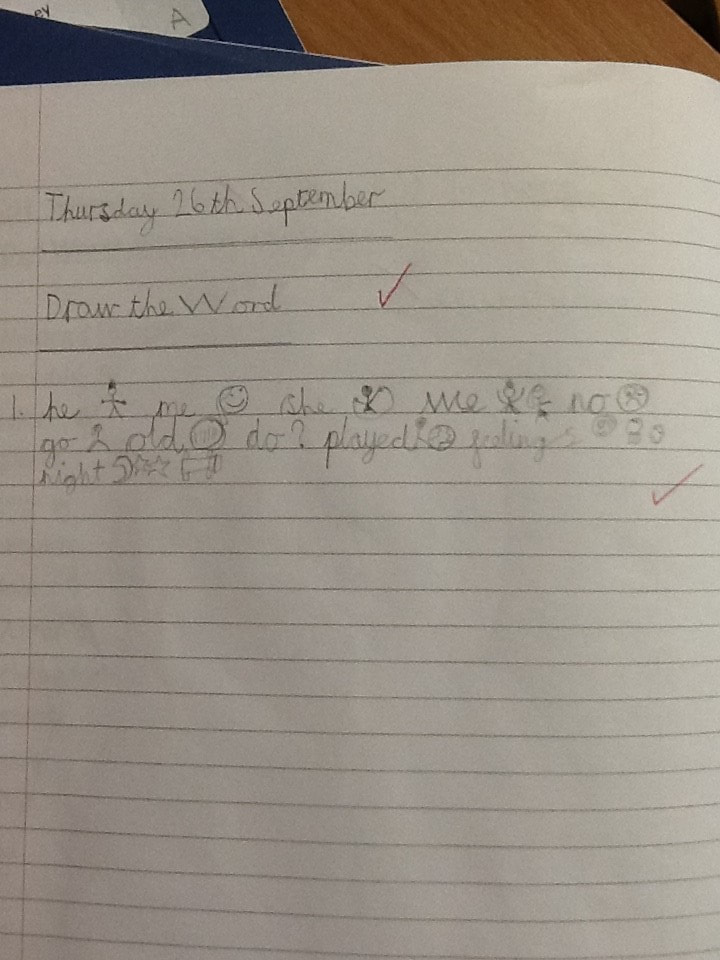 ey
A
Thursday 26th September
Draw the Word
1. he me she we no
go old do? played feelings
night